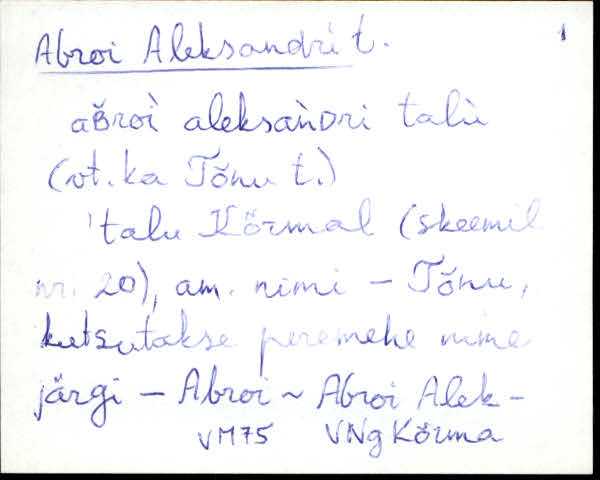 Abroi Aleksandri t. 1
aʙ̆roì aleksàɴᴅri talù
(vt. ka Tõnu t.)
'talu Kõrmal (skeemil
nr. 20), am. nimi – Tõnu,
kutsutakse peremehe nime
järgi – Abroi ~ Abroi Alek-
VM75 VNg Kõrma